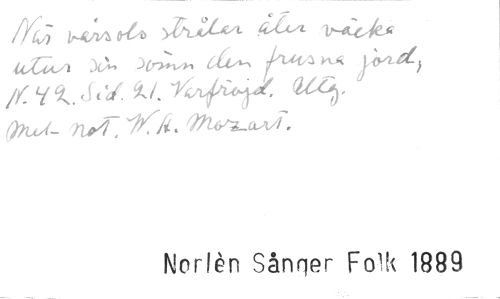 När vårsols strålar åter väcka
utur sin sömn den frusna jord,
N. 42. Sid. 21. Vårfröjd. Utg.
med not. W. A. Mozart.
Norlèn Sånger Folk 1889